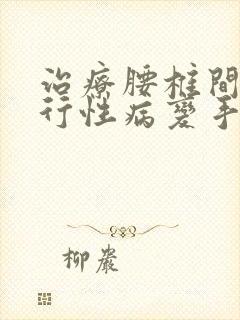 治療腰椎間
行性病變手
柳巖